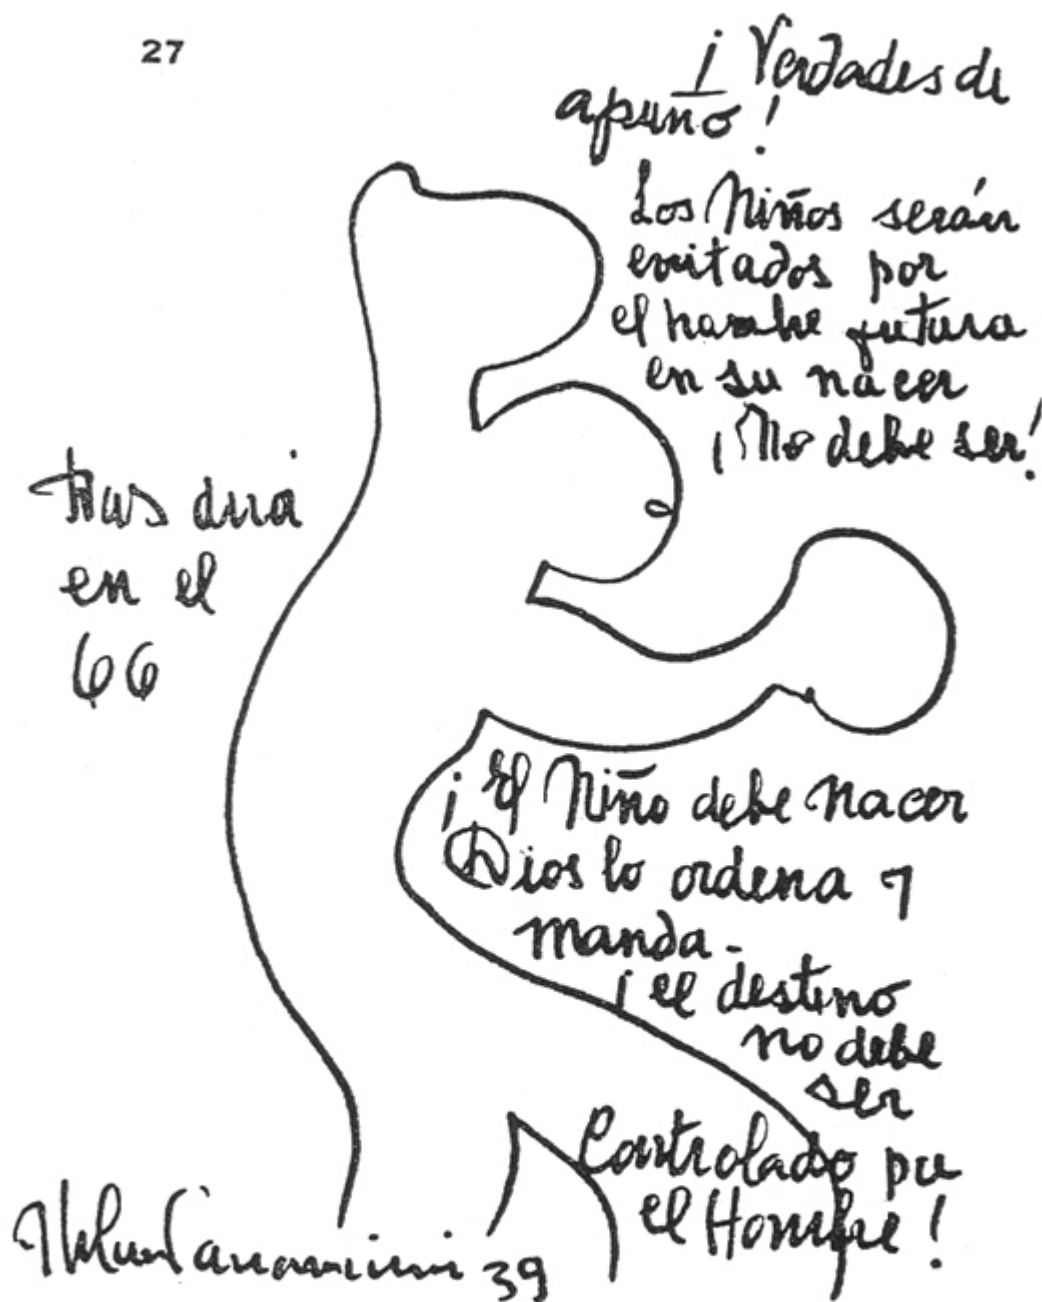 27
¡ Verdades de
a puño !
Los Niños serán
evitados por
el hombre futuro
en su nacer
¡ No debe ser !
en el
66
¡ El Niño debe nacer
Dios lo ordena y
manda -
¡ el destino
no debe
ser
Controlado por
el Hombre !
39